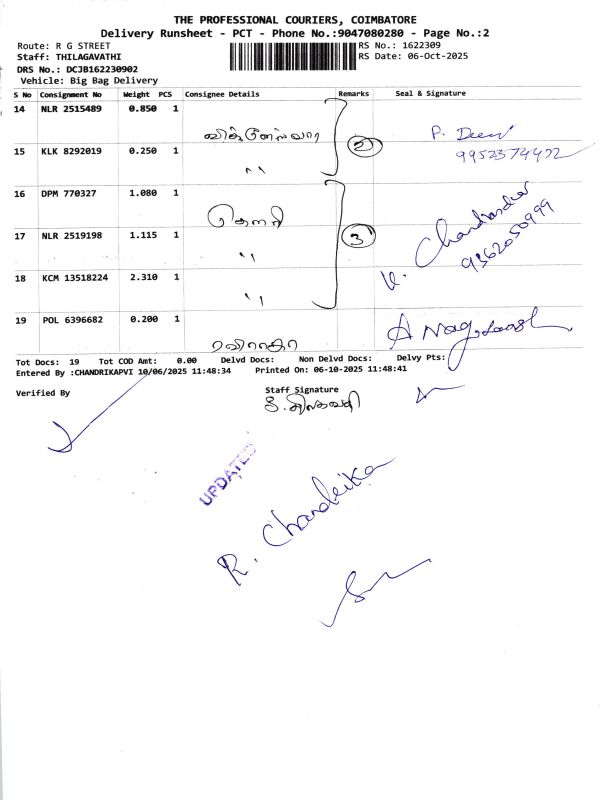 THE PROFESSIONAL COURIERS, COIMBATORE
Delivery Runsheet - PCT - Phone No.:9047080280 - Page No.:2
Route: R G STREET
RS No.: 1622309
Staff: THILAGAVATHI
RS Date: 06-Oct-2025
DRS No.: DCJB162230902
Vehicle: Big Bag Delivery
S No Consignment No Weight PCS Consignee Details Remarks Seal & Signature
14 NLR 2515489 0.850 1
P. Deevi
15 KLK 8292019 0.250 1 " 2
16 DPM 770327 1.080 1
கௌரி
17 NLR 2519198 1.115 1 " 3
9362050999
18 KCM 13518224 2.310 1 "
19 POL 6396682 0.200 1
Tot Docs: 19 Tot COD Amt: 0.00 Delvd Docs: Non Delvd Docs: Delvy Pts:
Entered By :CHANDRIKAPVI 10/06/2025 11:48:34 Printed On: 06-10-2025 11:48:41
Verified By
Staff Signature
UPDATED
R. Chandrika